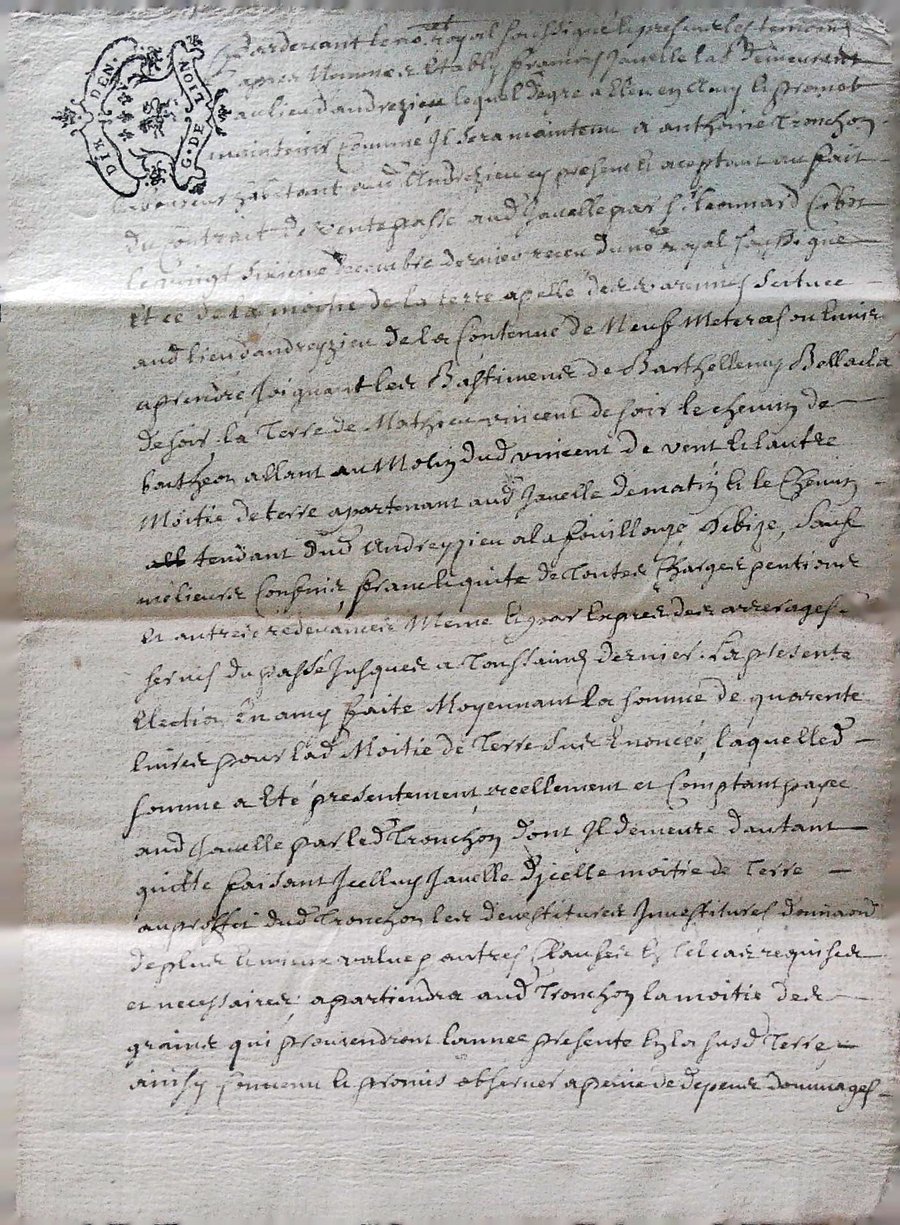 DIX DEN. G. DE LION
Pardevant le no.re royal soussigné et presens les temoins
apres Nommes Etably francois Javelle lab.r demeurant
au lieu dandrezieu lequel degre a Eleu en Amy et promet
maintenir comme Il sera maintenu a anthoine Tronchon
laboureur habitant aud Andrezieu cy present et aceptant au fait
du Contrait de vente passé aud Javelle par S.r Leonnard
le vingt sixieme decembre dernier receu dud no.re royal soussigné
Et ce de la moitié de la terre apellé des varennes scituee
aud lieu dandreyzieu de la Contenue de Neuf Meterees ou Envir
aprendre Joignant les Bastimens de Barthellemy
de soir la Terre de Mathieu vincent de soir le chemin de
boutheon allant au Molin dud vincent de vent et lautre
Moitié de terre apartenant aud Javelle de matin et le Chemin
tendant dud Andreyzieu a la fouillouze de bize, Sauf
melieurs Confins, franc et quite de Toutes Charges pentions
et autres redevances Meme et par Expres des arrerages
servis du passé Jusques a Toussaincts dernier. La presente
Election En amy faite Moyennant la somme de quarente
livres pour lad Moitié de Terre Sus Enoncée, laquelled
somme a Eté presentement reellement et Comptant payée
aud Javelle par led Tronchon dont Il demeure dautant
quitte faisant Icelluy Javelle dicelle moitié de Terre
au proffit dud Tronchon les devestitures Investitures
de plus et mieux value autres Clauses En tel cas requises
et necessaires: apartiendra aud Tronchon la moitié des
grains qui proviendront lannee presente En la susd Terre
ainsy Convenu et promis observer a peine de depens dommages